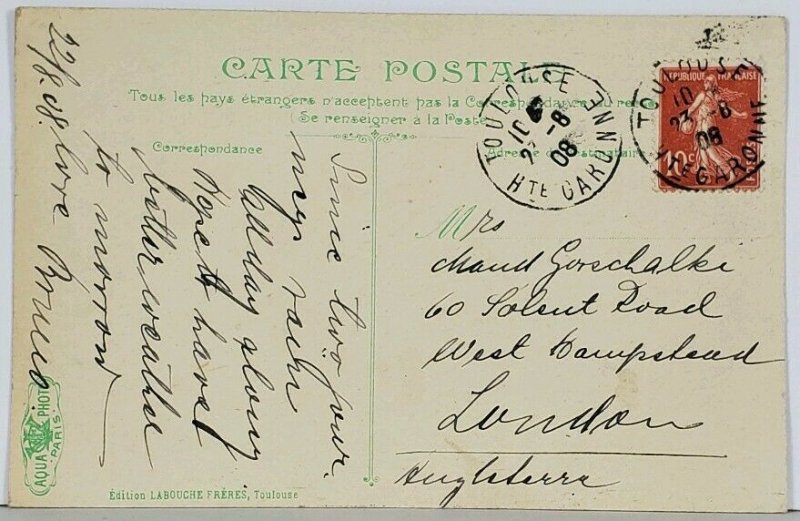 CARTE POSTALE
Tous les pays étrangers n'acceptent pas la Correspondance au recto
(Se renseigner à la Poste)
Correspondance
Adresse du destinataire
Since two jour
rain
all day along
Hope to have
better weather
to morrow
22/8.08. love
TOULOUSE
10
23 -8
08
HTE GARONNE
REPUBLIQUE FRANÇAISE
10c
POSTES
TOULOUSE
10
23 -8
08
HTE GARONNE
Mrs
Maud Gorschalke
60 Solent Road
West Hampstead
London
Angleterra
AQUA PHOTO
PARIS
Édition LABOUCHE FRÈRES, Toulouse